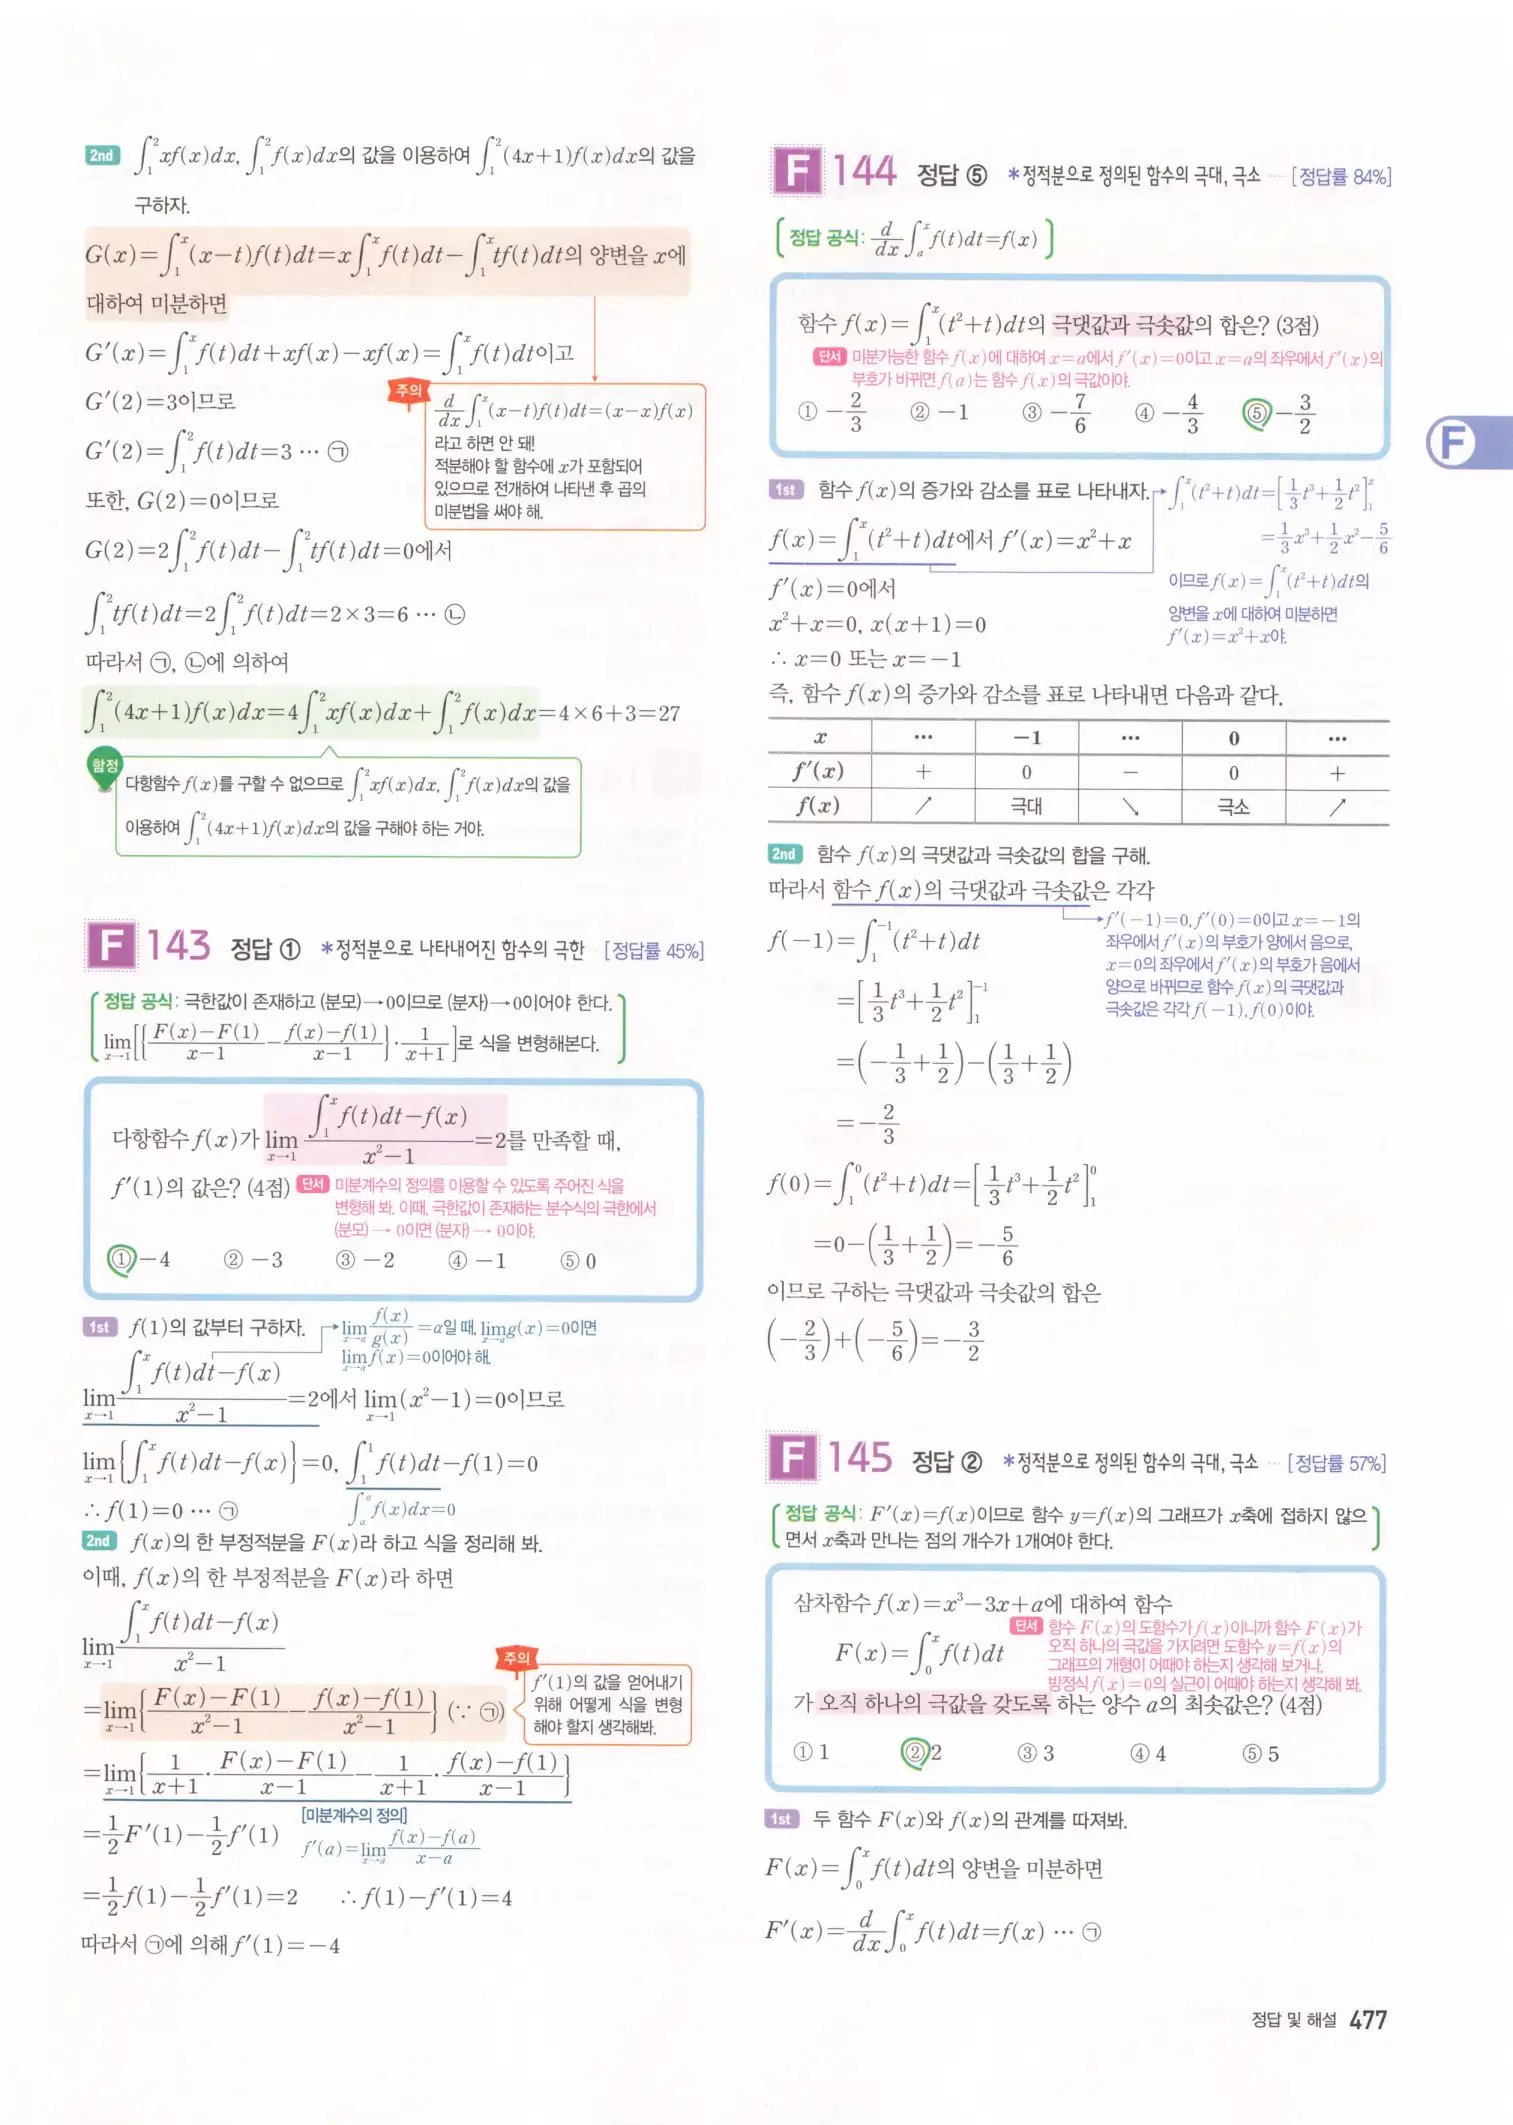 2nd ∫₁²xf(x)dx, ∫₁²f(x)dx의 값을 이용하여 ∫₁²(4x+1)f(x)dx의 값을
구하자.
G(x)=∫₁ˣ(x−t)f(t)dt=x∫₁ˣf(t)dt−∫₁ˣtf(t)dt의 양변을 x에
대하여 미분하면
G′(x)=∫₁ˣf(t)dt+xf(x)−xf(x)=∫₁ˣf(t)dt이고
G′(2)=3이므로
G′(2)=∫₁²f(t)dt=3 … ㉠
또한, G(2)=0이므로
G(2)=2∫₁²f(t)dt−∫₁²tf(t)dt=0에서
주의
d/dx ∫₁ˣ(x−t)f(t)dt=(x−x)f(x)
라고 하면 안 돼!
적분해야 할 함수에 x가 포함되어
있으므로 전개하여 나타낸 후 곱의
미분법을 써야 해.
∫₁²tf(t)dt=2∫₁²f(t)dt=2×3=6 … ㉡
따라서 ㉠, ㉡에 의하여
∫₁²(4x+1)f(x)dx=4∫₁²xf(x)dx+∫₁²f(x)dx=4×6+3=27
함정
다항함수 f(x)를 구할 수 없으므로 ∫₁²xf(x)dx, ∫₁²f(x)dx의 값을
이용하여 ∫₁²(4x+1)f(x)dx의 값을 구해야 하는 거야.
F 143 정답 ① *정적분으로 나타내어진 함수의 극한 [정답률 45%]
정답 공식: 극한값이 존재하고 (분모)→0이므로 (분자)→0이어야 한다.
lim(x→1)[{(F(x)−F(1))/(x−1)−(f(x)−f(1))/(x−1)}·1/(x+1)]로 식을 변형해본다.
다항함수 f(x)가 lim(x→1) (∫₁ˣf(t)dt−f(x))/(x²−1)=2를 만족할 때,
f′(1)의 값은? (4점) 단서 미분계수의 정의를 이용할 수 있도록 주어진 식을
변형해 봐. 이때, 극한값이 존재하는 분수식의 극한에서
(분모)→0이면 (분자)→0이야.
① −4 ② −3 ③ −2 ④ −1 ⑤ 0
1st f(1)의 값부터 구하자.
lim(x→a) f(x)/g(x)=α일 때, lim(x→a)g(x)=0이면
lim(x→a)f(x)=0이어야 해.
lim(x→1) (∫₁ˣf(t)dt−f(x))/(x²−1)=2에서 lim(x→1)(x²−1)=0이므로
lim(x→1){∫₁ˣf(t)dt−f(x)}=0, ∫₁¹f(t)dt−f(1)=0
∴ f(1)=0 … ㉠ ∫ₐᵃf(x)dx=0
2nd f(x)의 한 부정적분을 F(x)라 하고 식을 정리해 봐.
이때, f(x)의 한 부정적분을 F(x)라 하면
lim(x→1) (∫₁ˣf(t)dt−f(x))/(x²−1)
=lim(x→1){(F(x)−F(1))/(x²−1)−(f(x)−f(1))/(x²−1)} (∵ ㉠)
주의
f′(1)의 값을 얻어내기
위해 어떻게 식을 변형
해야 할지 생각해봐.
=lim(x→1){1/(x+1)·(F(x)−F(1))/(x−1)−1/(x+1)·(f(x)−f(1))/(x−1)}
=1/2F′(1)−1/2f′(1)
[미분계수의 정의]
f′(a)=lim(x→a) (f(x)−f(a))/(x−a)
=1/2f(1)−1/2f′(1)=2 ∴ f(1)−f′(1)=4
따라서 ㉠에 의해 f′(1)=−4
F 144 정답 ⑤ *정적분으로 정의된 함수의 극대, 극소 … [정답률 84%]
정답 공식: d/dx ∫ₐˣf(t)dt=f(x)
함수 f(x)=∫₁ˣ(t²+t)dt의 극댓값과 극솟값의 합은? (3점)
단서 미분가능한 함수 f(x)에 대하여 x=a에서 f′(x)=0이고 x=a의 좌우에서 f′(x)의
부호가 바뀌면 f(a)는 함수 f(x)의 극값이야.
① −2/3 ② −1 ③ −7/6 ④ −4/3 ⑤ −3/2
1st 함수 f(x)의 증가와 감소를 표로 나타내자.
f(x)=∫₁ˣ(t²+t)dt에서 f′(x)=x²+x
f′(x)=0에서
x²+x=0, x(x+1)=0
∴ x=0 또는 x=−1
∫₁ˣ(t²+t)dt=[1/3t³+1/2t²]₁ˣ
=1/3x³+1/2x²−5/6
이므로 f(x)=∫₁ˣ(t²+t)dt의
양변을 x에 대하여 미분하면
f′(x)=x²+x야.
즉, 함수 f(x)의 증가와 감소를 표로 나타내면 다음과 같다.
x … −1 … 0 …
f′(x) + 0 − 0 +
f(x) ↗ 극대 ↘ 극소 ↗
2nd 함수 f(x)의 극댓값과 극솟값의 합을 구해.
따라서 함수 f(x)의 극댓값과 극솟값은 각각
f(−1)=∫₁⁻¹(t²+t)dt
=[1/3t³+1/2t²]₁⁻¹
=(−1/3+1/2)−(1/3+1/2)
=−2/3
f′(−1)=0, f′(0)=0이고 x=−1의
좌우에서 f′(x)의 부호가 양에서 음으로,
x=0의 좌우에서 f′(x)의 부호가 음에서
양으로 바뀌므로 함수 f(x)의 극댓값과
극솟값은 각각 f(−1), f(0)이야.
f(0)=∫₁⁰(t²+t)dt=[1/3t³+1/2t²]₁⁰
=0−(1/3+1/2)=−5/6
이므로 구하는 극댓값과 극솟값의 합은
(−2/3)+(−5/6)=−3/2
F 145 정답 ② *정적분으로 정의된 함수의 극대, 극소 … [정답률 57%]
정답 공식: F′(x)=f(x)이므로 함수 y=f(x)의 그래프가 x축에 접하지 않으
면서 x축과 만나는 점의 개수가 1개여야 한다.
삼차함수 f(x)=x³−3x+a에 대하여 함수
F(x)=∫₀ˣf(t)dt
단서 함수 F(x)의 도함수가 f(x)이니까 함수 F(x)가
오직 하나의 극값을 가지려면 도함수 y=f(x)의
그래프의 개형이 어때야 하는지 생각해 보거나,
방정식 f(x)=0의 실근이 어때야 하는지 생각해 봐.
가 오직 하나의 극값을 갖도록 하는 양수 a의 최솟값은? (4점)
① 1 ② 2 ③ 3 ④ 4 ⑤ 5
1st 두 함수 F(x)와 f(x)의 관계를 따져봐.
F(x)=∫₀ˣf(t)dt의 양변을 미분하면
F′(x)=d/dx ∫₀ˣf(t)dt=f(x) … ㉠
F
정답 및 해설 477